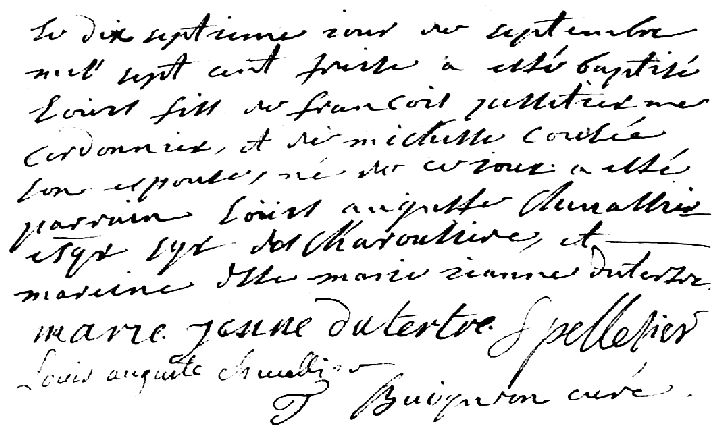 Le dix septieme iour de septembre
mil sept cent trente a esté baptisé
Louis fils de francois pelletier me
cordonnier, et de michelle coulée
son espouse, né de ce iour a esté
parrain Louis auguste Chevallier
esqr sgr des Charoulliere, et
mareine dlle marie ieanne dutertre.
marie jenne dutertre. f pelletier
Louis auguste chevallier
Buignon curé.